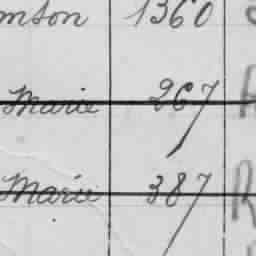 mson 1360
Marie 267
Marie 387 R